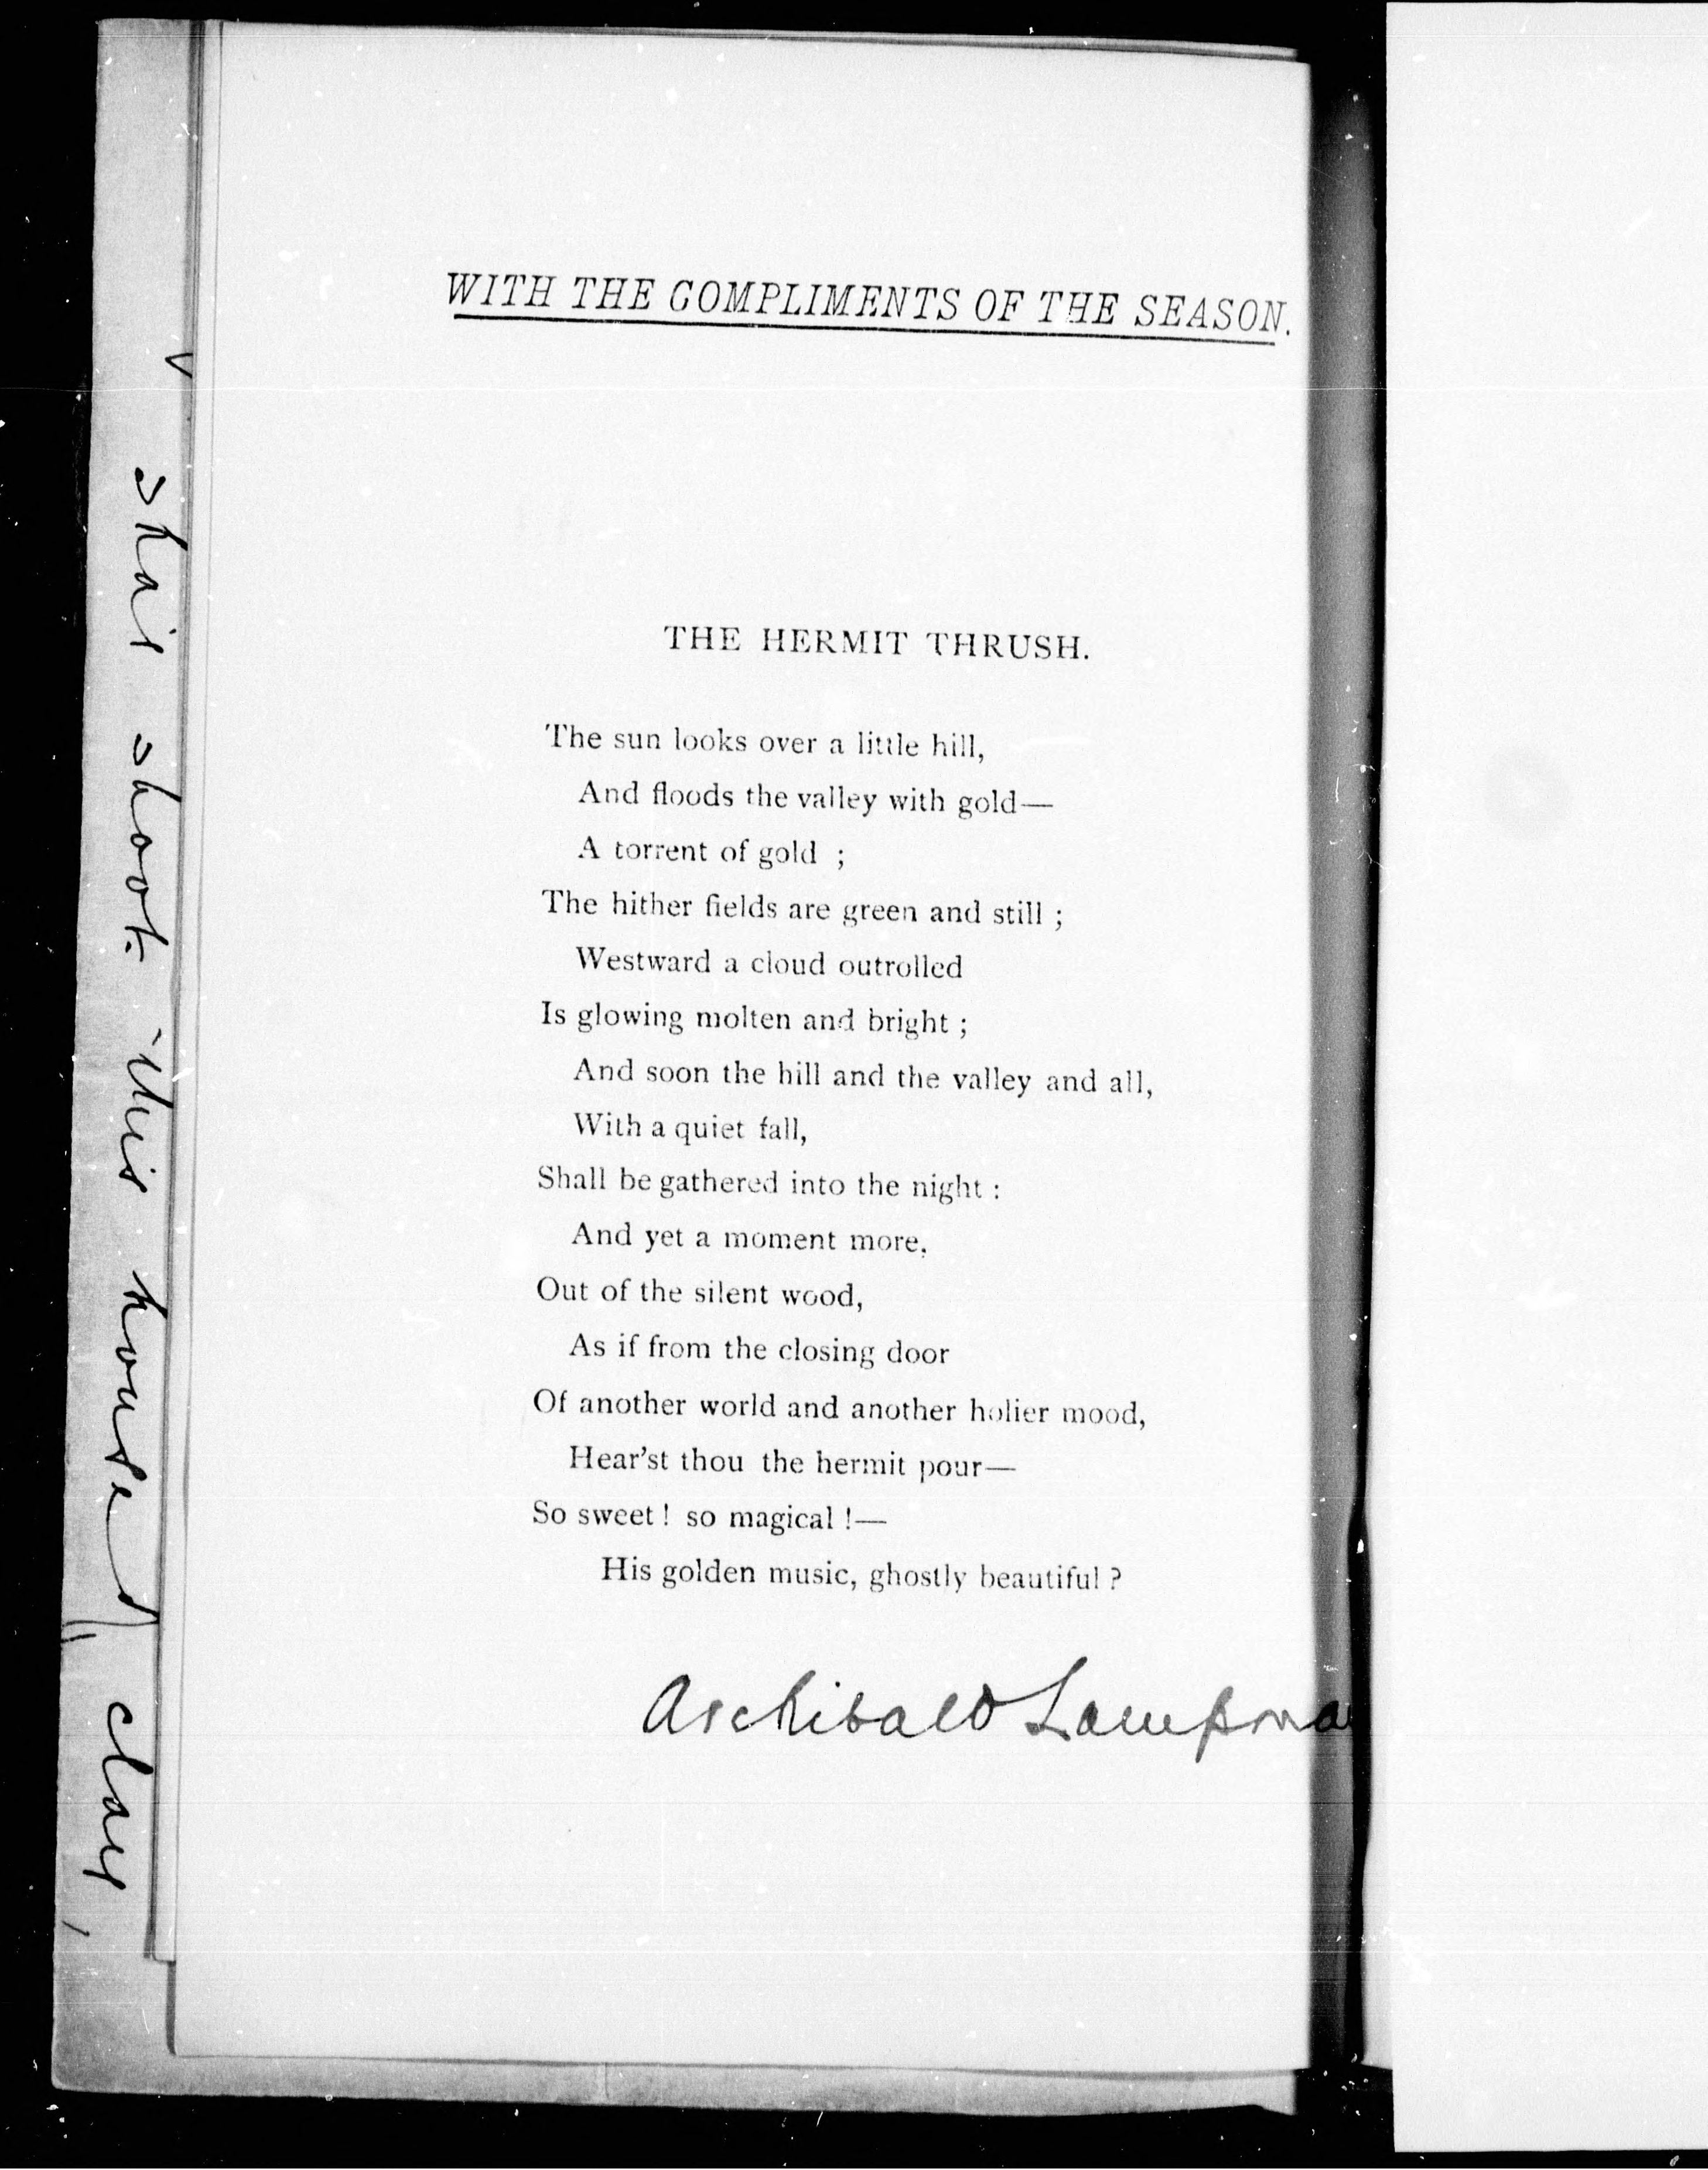 WITH THE COMPLIMENTS OF THE SEASON.
THE HERMIT THRUSH.
The sun looks over a little hill,
And floods the valley with gold—
A torrent of gold ;
The hither fields are green and still ;
Westward a cloud outrolled
Is glowing molten and bright ;
And soon the hill and the valley and all,
With a quiet fall,
Shall be gathered into the night :
And yet a moment more,
Out of the silent wood,
As if from the closing door
Of another world and another holier mood,
Hear'st thou the hermit pour—
So sweet ! so magical !—
His golden music, ghostly beautiful ?
Archibald Lampma
shook this house clay,